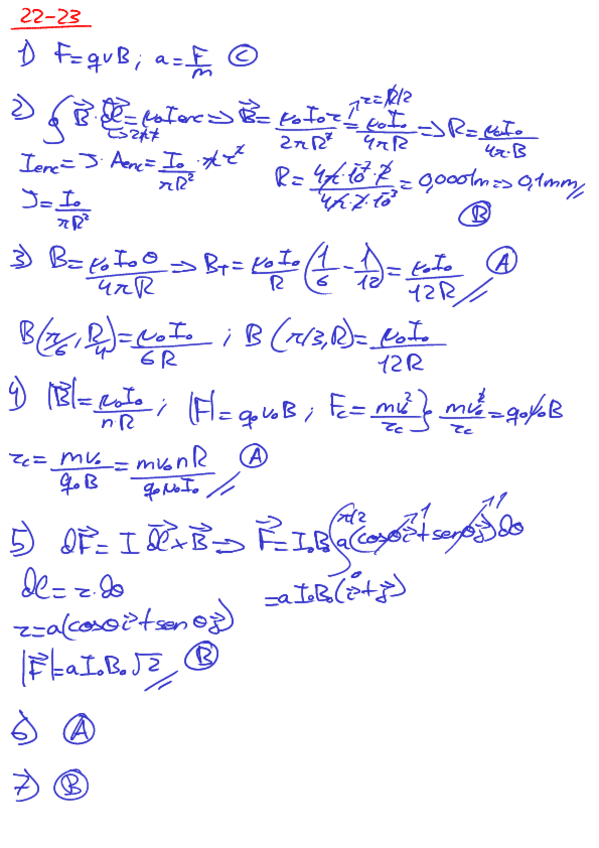 22-23
1) F=qvB; a=F/m (C)
2) ∮B⃗·dl⃗=μ₀Ienc⇒B⃗=μ₀I₀r/2πR²=μ₀I₀/4πR⇒R=μ₀I₀/4π·B
r=R/2
2πr
Ienc=J·Aenc=I₀/πR²·πr²
R=4π·10⁻⁷·2/4π·2·10⁻³=0,0001m⇒0,1mm
J=I₀/πR²
(B)
3) B=μ₀I₀θ/4πR⇒B_T=μ₀I₀/R(1/6-1/12)=μ₀I₀/12R (A)
B(π/6,R/4)=μ₀I₀/6R; B(π/3,R)=μ₀I₀/12R
4) |B⃗|=μ₀I₀/nR; |F|=q₀v₀B; Fc=mv₀²/rc} mv₀²/rc=q₀v₀B
rc=mv₀/q₀B=mv₀nR/q₀μ₀I₀ (A)
5) dF⃗=I dl⃗×B⃗⇒F⃗=I₀B₀∫₀^π/2 a(cosθi⃗+senθj⃗)dθ
1 1
dl=r·dθ
=aI₀B₀(i⃗+j⃗)
r=a(cosθi⃗+senθj⃗)
|F⃗|=aI₀B₀√2 (B)
6) (A)
7) (B)